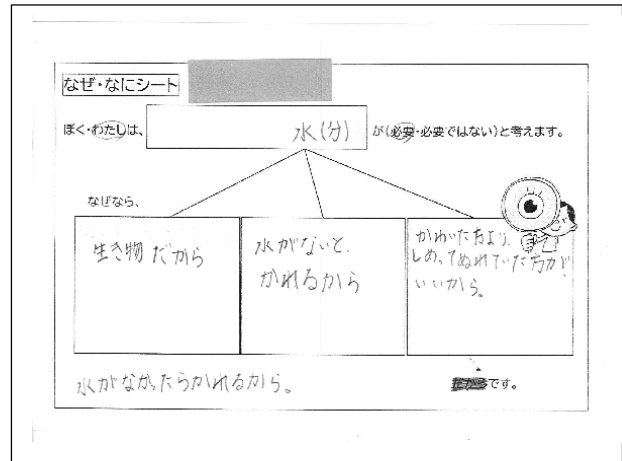 なぜ・なにシート
ぼく・わたしは、
水(分)
が(必要・必要ではない)と考えます。
なぜなら、
生き物だから
水がないと、
かれるから
かわいた方より、
しめってぬれていた方が
いいから。
水がなかったらかれるから。
です。